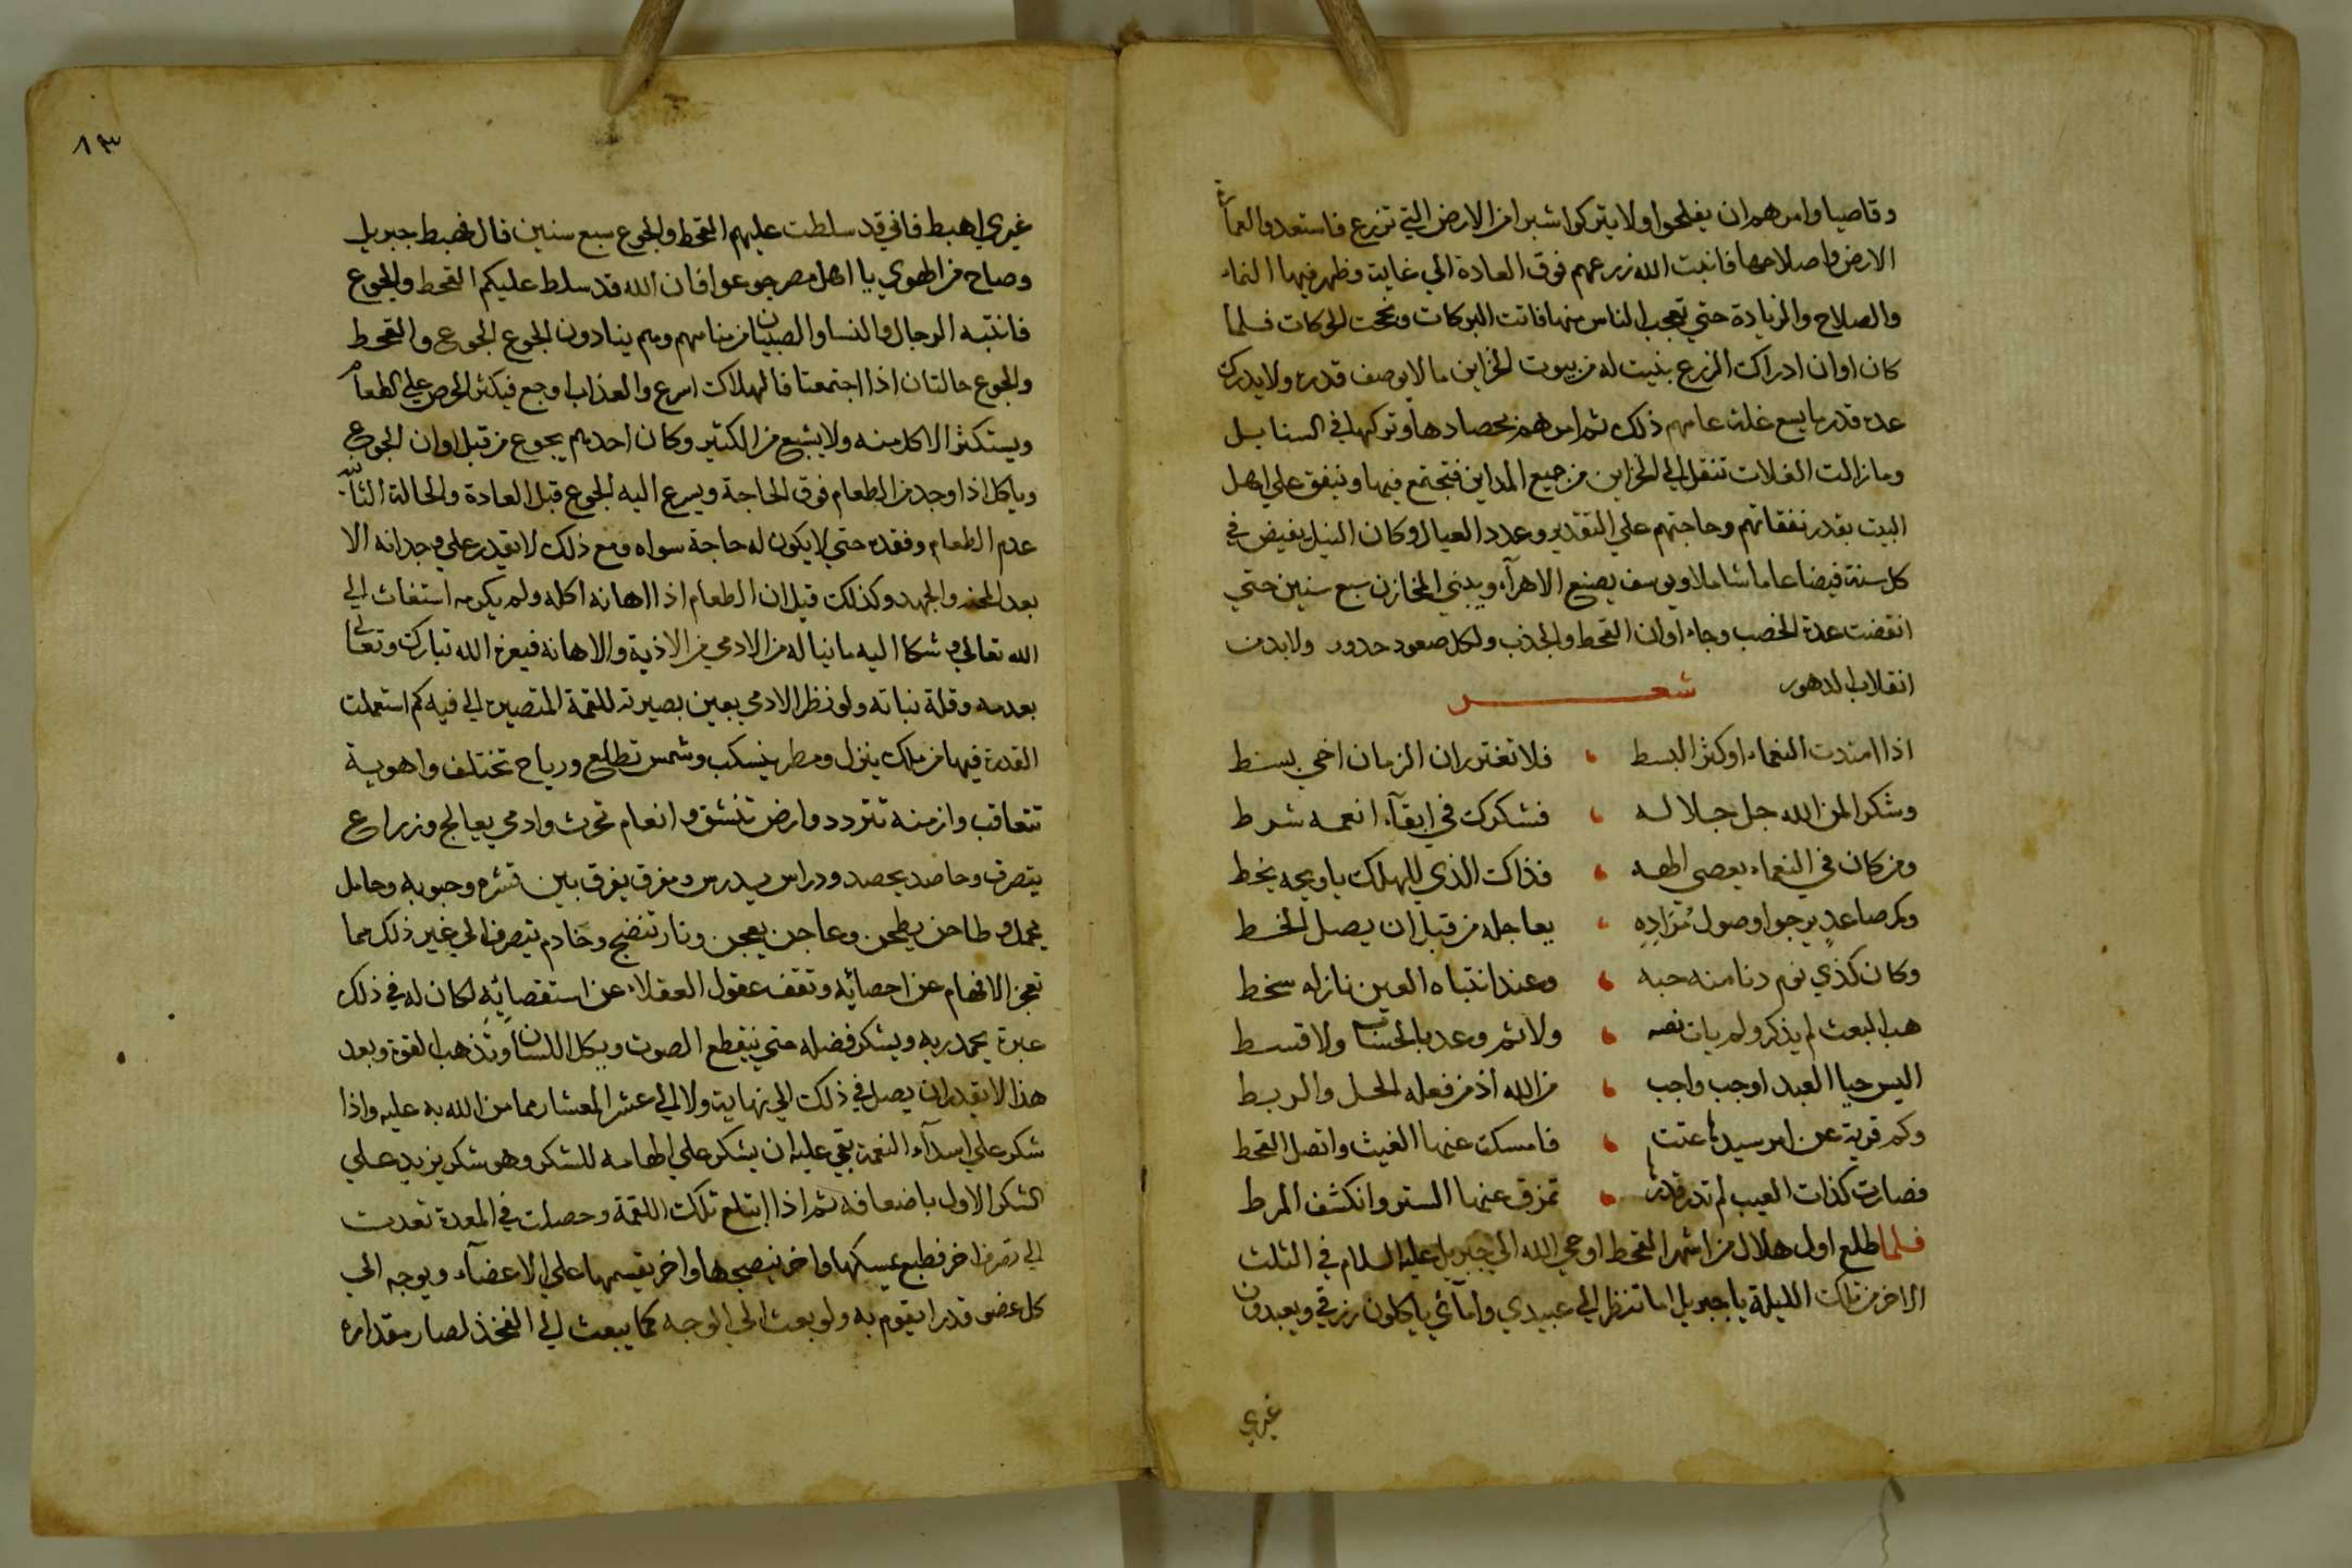 وقاصيا وامرهم ان يفلحوا ولا يتركوا شبرا من الارض التي تزرع فاستعدوا لعمارة
الارض واصلاحها فانبت الله زرعهم فوق العادة الي غاية وظهر فيها النماء
والصلاح والزيادة حتي تعجب الناس منها فاتت البركات ونجحت الحركات فلما
كان اوان ادراك الزرع بنيت له من بيوت الخزاين ما لا يوصف قدره ولا يدرك
عده قدر ما يسع غلة عامهم ذلك ثم امرهم بحصادها وتركها في السنابل
وما زالت الغلات تنقل الي الخزاين من جميع المداين فتجتمع فيها وينفق علي اهل
البيت بقدر نفقاتهم وحاجتهم علي التقدير وعدد العيال وكان النيل يفيض في
كل سنة فيضا عاما شاملا ويوسف يصنع الاهرآء ويبني المخازن سبع سنين حتي
انقضت عدة الخصب وجاء اوان القحط والجذب ولكل صعود حدور ولا بد من
انقلاب الدهور شعر
اذا امتدت النعماء او كثر البسط ، فلا تغترر ان الزمان اخي بسط
وشكرا لمن الله جل جلاله ، فشكرك في ابقآء انعمه شرط
ومن كان في النعماء يعصي الهه ، فذاك الذي للهلك يا ويحه يخط
وكم صاعد يرجوا وصول مُرَادِهِ ، يعاجله من قبل ان يصل الخط
وكان كذي نوم دنا منه حبه ، وعند انتباه العين نازله سخط
هب البعث لم يذكر ولم يات نصه ، ولا ثم وعد بالحساب ولا قسط
اليس حيا العبد اوجب واجب ، من الله اذ من فعله الحل والربط
وكم قرية عن امر سيدها عتت ، فامسكت عنها الغيث واتصل القحط
فصارت كذات العيب لم تدر قدرها ، تمزق عنها الستر وانكشف المرط
فلما طلع اول هلال من اشهر القحط اوحي الله الي جبريل عليه السلام في الثلث
الاخر من تلك الليلة يا جبريل اما تنظر الي عبيدي وامآئي ياكلون رزقي ويعبدون
غيري
١٣
غيري اهبط فاني قد سلطت عليهم القحط والجوع سبع سنين قال فهبط جبريل
وصاح من الهوي يا اهل مصر جوعوا فان الله قد سلط عليكم القحط والجوع
فانتبه الرجال والنسا والصبيان من منامهم وهم ينادون الجوع الجوع والقحط
والجوع حالتان اذا اجتمعتا فالهلاك اسرع والعذاب اوجع فيكثر الحرص علي الطعام
ويستكثر الاكل منه ولا يشبع من الكثير وكان احدهم يجوع من قبل اوان الجوع
وياكل اذا وجد من الطعام فوق الحاجة ويسرع اليه الجوع قبل العادة والحالة الثانية
عدم الطعام وفقده حتي لا يكون له حاجة سواه ومع ذلك لا يقدر علي وجدانه الا
بعد المحنه والجهد وكذلك قيل ان الطعام اذا اهانه اكله ولم يكرمه استغاث الي
الله تعالي وشكا اليه ما نياله من الادمي من الاذية والاهانة فيعزه الله تبارك وتعالي
بعدمه وقلة نباته ولو نظر الادمي بعين بصيرته للقمة المتصيره الي فيه كم استعملت
القدرة فيها من ملك ينزل ومطر ينسكب وشمس تطلع ورياح تختلف واهوية
تتعاقب وازمنة تتردد وارض تنشق وانعام تحرث وادمي يعالج وزراع
يتصرف وحاصد يحصد ودراس يدرس ومفرق يفرق بين قشره وحبوبه وحامل
يحمل وطاحن يطحن وعاجن يعجن ونار تنضج وخادم يتصرف الي غير ذلك مما
تعجز الافهام عن احصائه وتقف عقول العقلاء عن استقصائه لكان له في ذلك
عبرة يحمد ربه ويشكر فضله حتي ينقطع الصوت ويكل اللسان وتذهب القوة وبعد
هذا لا يقدر ان يصل في ذلك الي نهاية ولا الي عشر المعشار مما من الله به عليه واذا
شكر علي اسدآء النعمة بقي عليه ان يشكر علي الهامه للشكر وهو شكر يزيد علي
الشكر الاول باضعافه ثم اذا ابتلع تلك اللقمة وحصلت في المعدة تعدت
الي تصرف اخر فطبع يمسكها واخر ينضجها واخر يقسمها علي الاعضآء ويوجه الي
كل عضو قدرا يقوم به ولو بعث الي الوجه كما يبعث الي الفخذ لصار مقداره